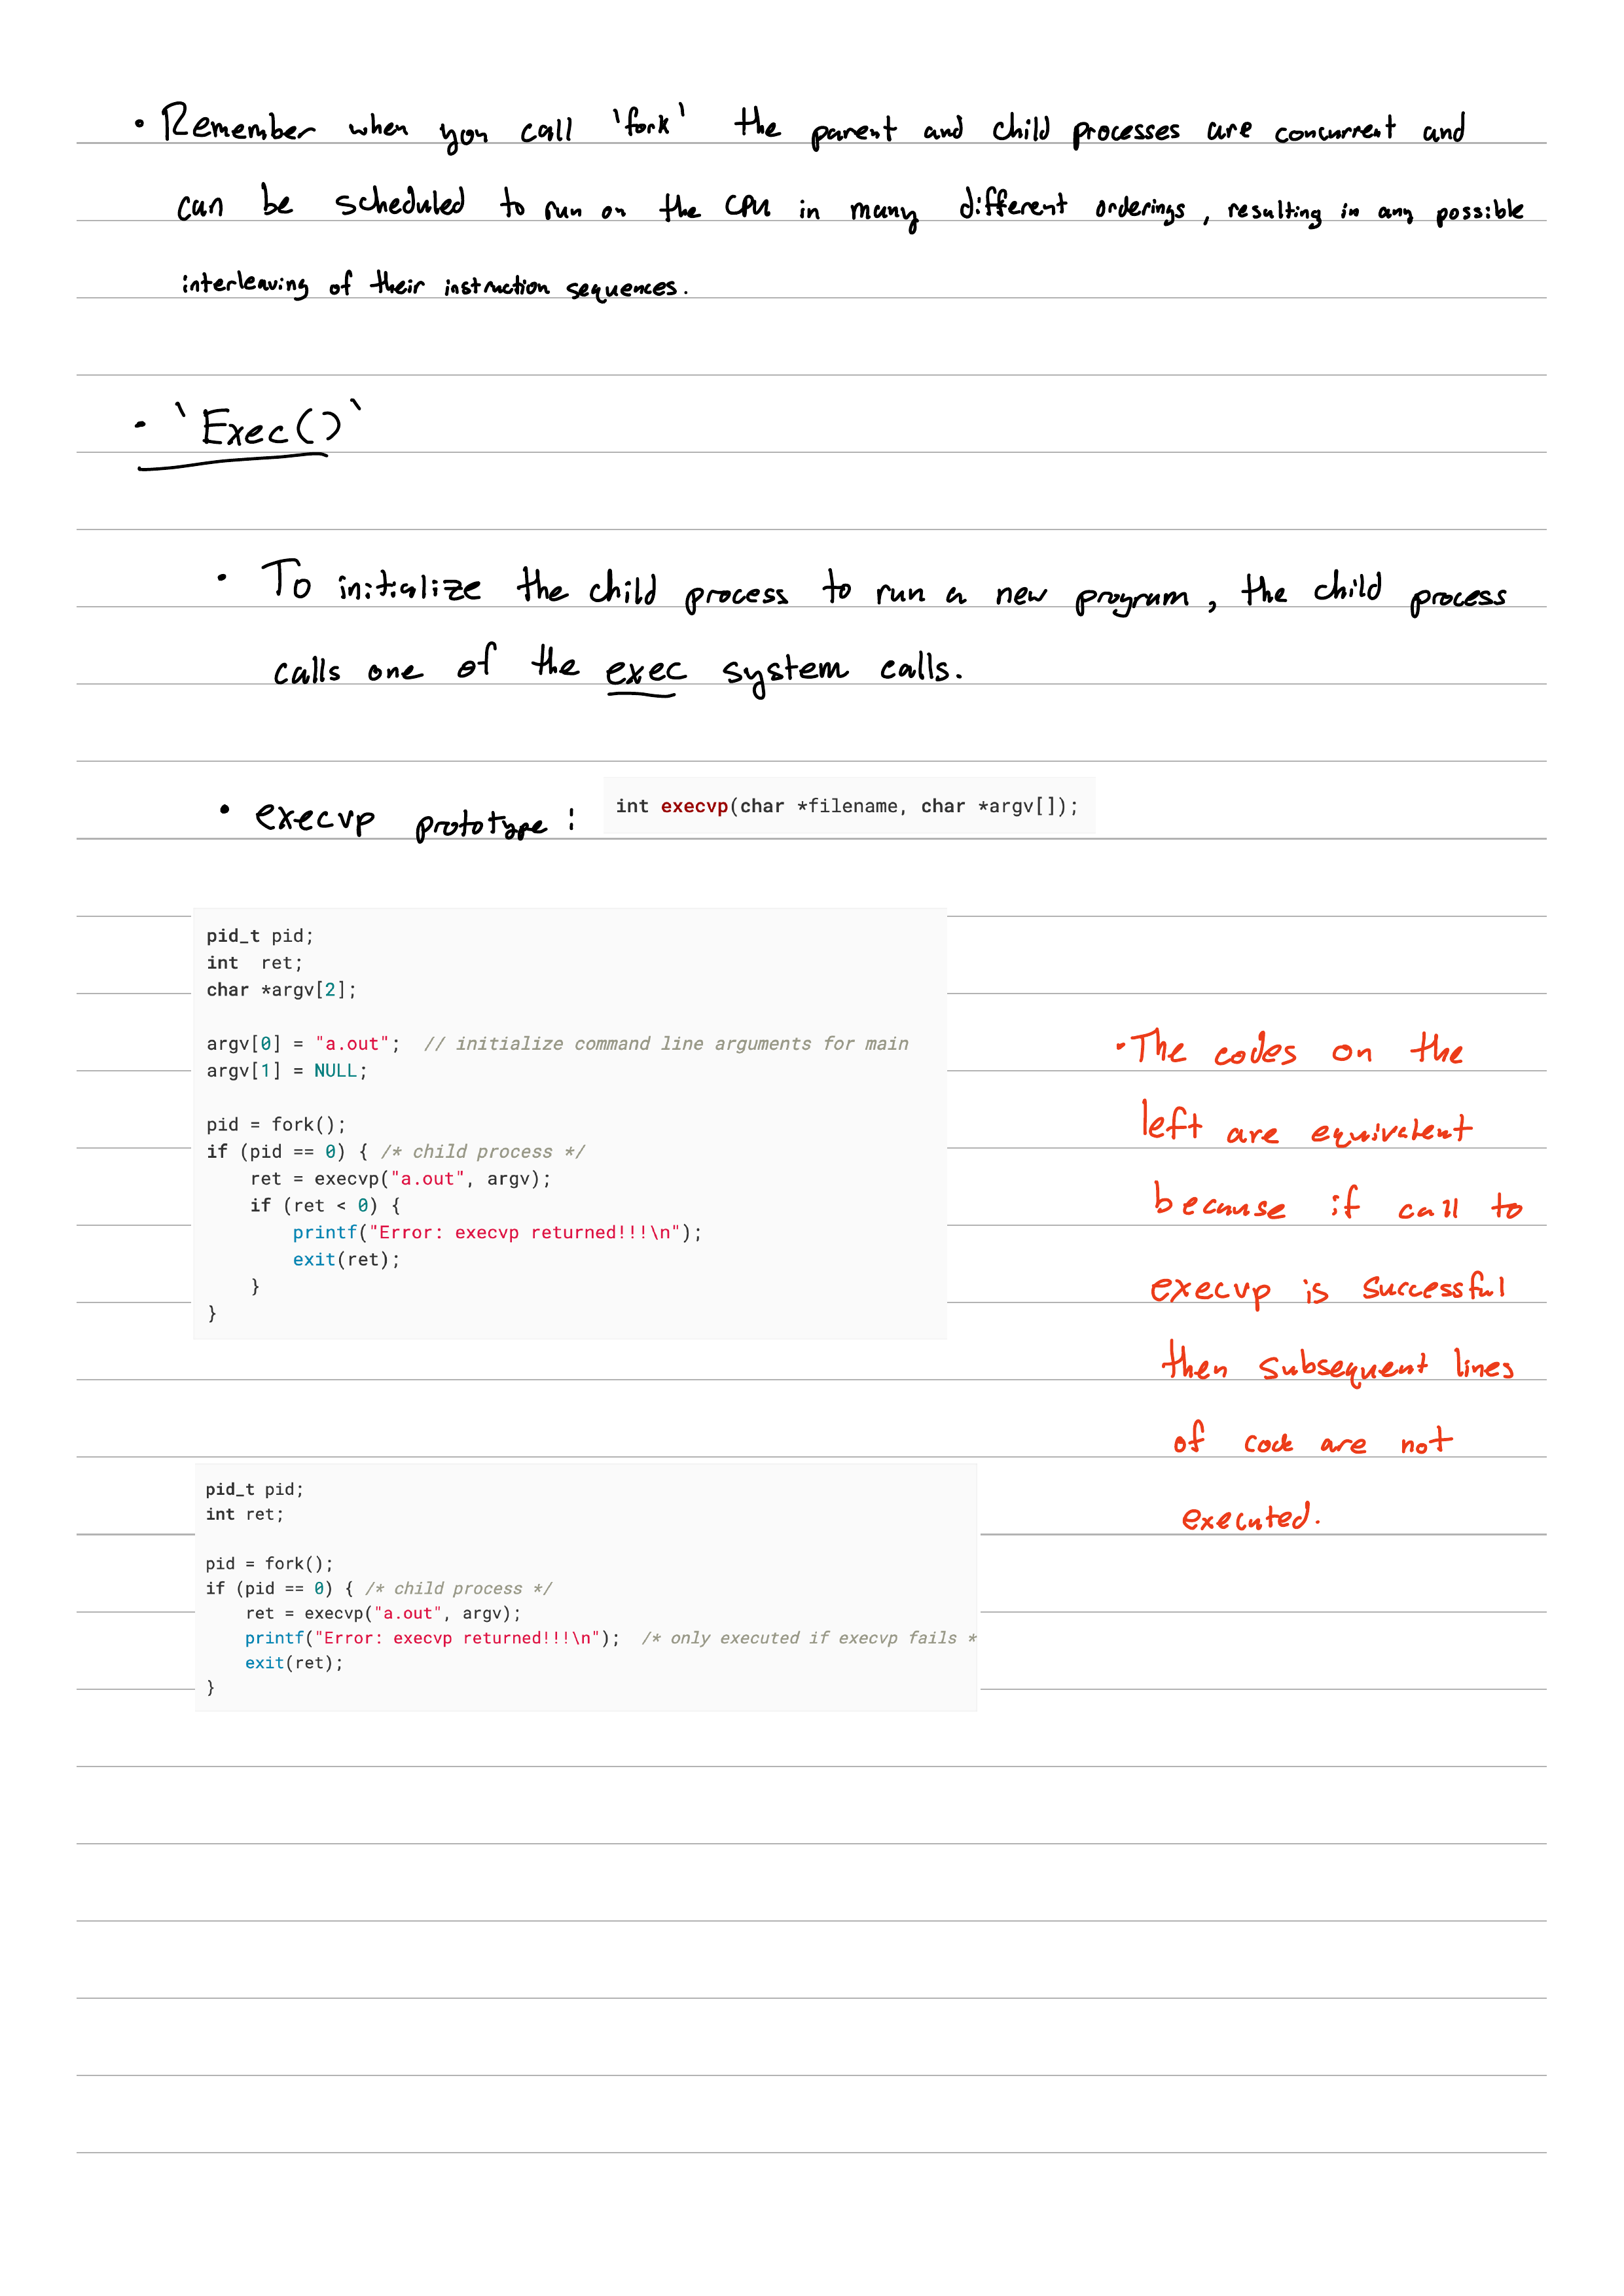 • Remember when you call 'fork' the parent and child processes are concurrent and
can be scheduled to run on the CPU in many different orderings, resulting in any possible
interleaving of their instruction sequences.
• `Exec()`
• To initialize the child process to run a new program, the child process
calls one of the exec system calls.
• execvp prototype: int execvp(char *filename, char *argv[]);
pid_t pid;
int  ret;
char *argv[2];
argv[0] = "a.out";  // initialize command line arguments for main
argv[1] = NULL;
pid = fork();
if (pid == 0) { /* child process */
    ret = execvp("a.out", argv);
    if (ret < 0) {
        printf("Error: execvp returned!!!\n");
        exit(ret);
    }
}
• The codes on the
left are equivalent
because if call to
execvp is successful
then subsequent lines
of code are not
executed.
pid_t pid;
int ret;
pid = fork();
if (pid == 0) { /* child process */
    ret = execvp("a.out", argv);
    printf("Error: execvp returned!!!\n");  /* only executed if execvp fails *
    exit(ret);
}